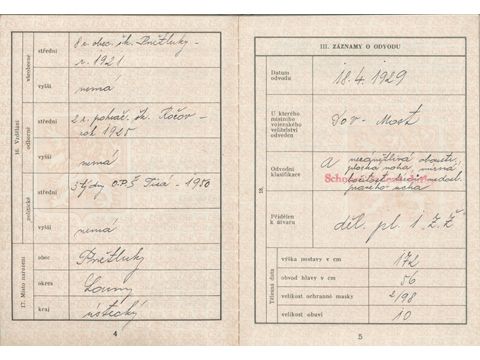 16. Vzdělání
všeobecné
střední
8 r. obec. šk. Pnětluky -
r. 1921
vyšší
nemá
odborné
střední
2 r. pokrač. šk. Ročov -
rok 1925
vyšší
nemá
politické
střední
3 týdny O.P.Š. Tisá - 1950
vyšší
nemá
17. Místo narození
obec
Pnětluky
okres
Louny
kraj
ústecký
4
III. ZÁZNAMY O ODVODU
18.
Datum
odvodu
18. 4. 1929
U kterého
místního
vojenského
velitelství
odveden
Dov - Most
Odvodní
klasifikace
A
plochá noha,
pravého ucha
Přidělen
k útvaru
děl. pl. 1 "Ž. Ž"
Tělesná data
výška postavy v cm
172
obvod hlavy v cm
56
velikost ochranné masky
2/98
velikost obuvi
10
5